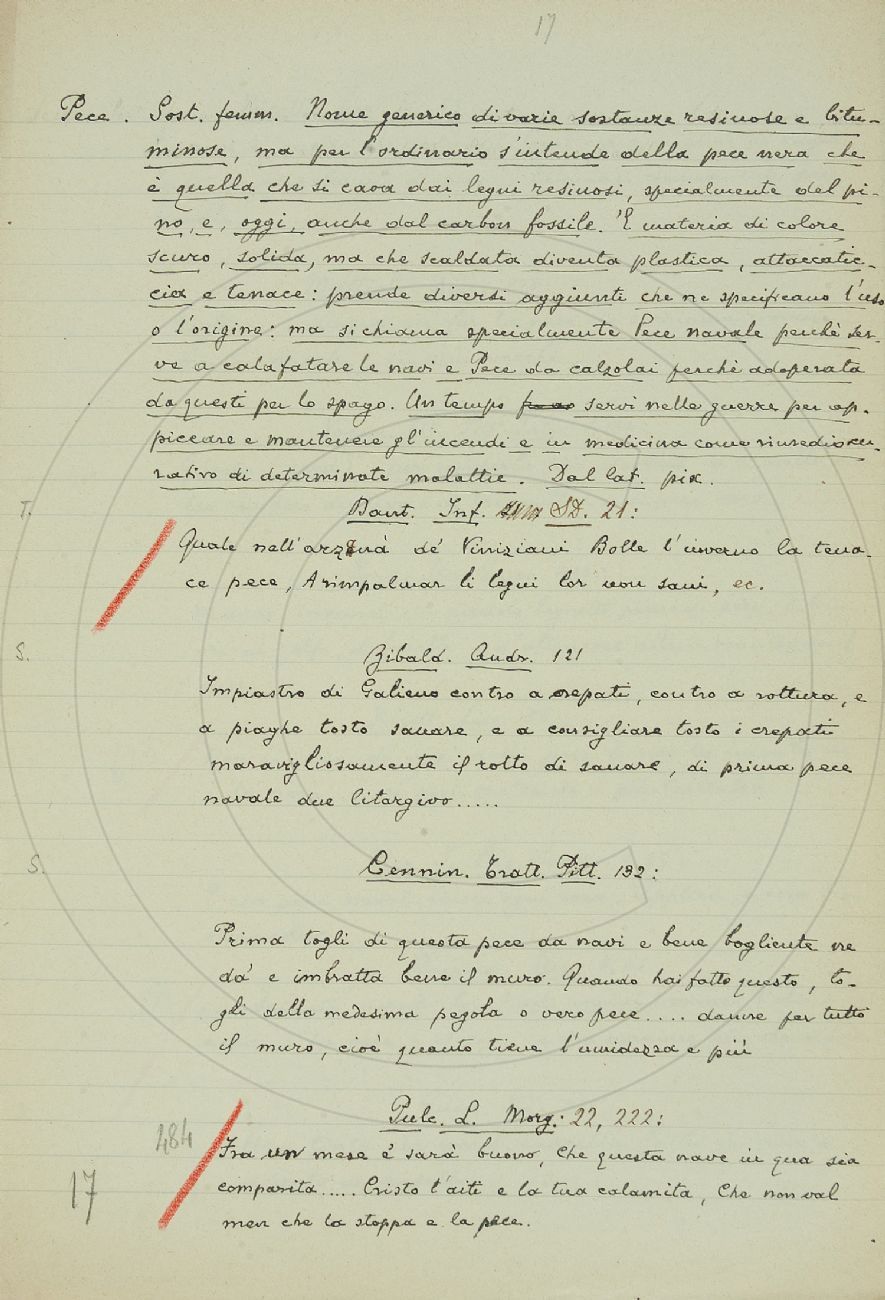 17
Pece. Sost. femm. Nome generico di varie sostanze resinose e bitu-
minose, ma per l'ordinario s'intende della pece nera che
è quella che si cava dai legni resinosi, specialmente del pi-
no, e, oggi, anche dal carbon fossile. 'È materia di colore
scuro, solida, ma che scaldata diventa plastica, attaccatic-
cia e tenace: prende diversi aggiunti che ne specificano l'uso
o l'origine: ma si chiama specialmente Pece navale perchè ser-
ve a calafatare le navi e Pece da calzolai perchè adoperata
da questi per lo spago. Un tempo servì nelle guerre per ap-
piccare e mantenere gl'incendi e in medicina come rimedio cu-
rativo di determinate malattie. Dal lat. pix.
T.
Dant. Inf. SD. 21:
Quale nell'arzanà de' Viniziani Bolle l'inverno la tena-
ce pece, A rimpalmar li legni lor non sani, ec.
S.
Zibald. Andr. 121
Impiastro di Galieno contro a crepati, contro a rottura, e
a piaghe tosto sanare, e a consigliare tosto i crepati
maravigliosamente il rotto di sanare, di prima pece
navale due litargivo.....
S.
Cennin. Tratt. Pitt. 132:
Prima togli di questa pece da navi e bene bogliente ne
dá e imbratta bene il muro. Quando hai fatto questo, to-
gli della medesima pegola o vero pece.... danne per tutto
il muro, cioè quanto tiene l'umidezza e più
Pulc. L. Morg. 22, 222:
484
Fra un mese é sarà buono, Che questa nave in qua sia
17
comparita..... Cristo t'aiti e la tua calamita, Che non val
men che la stoppa e la pece.